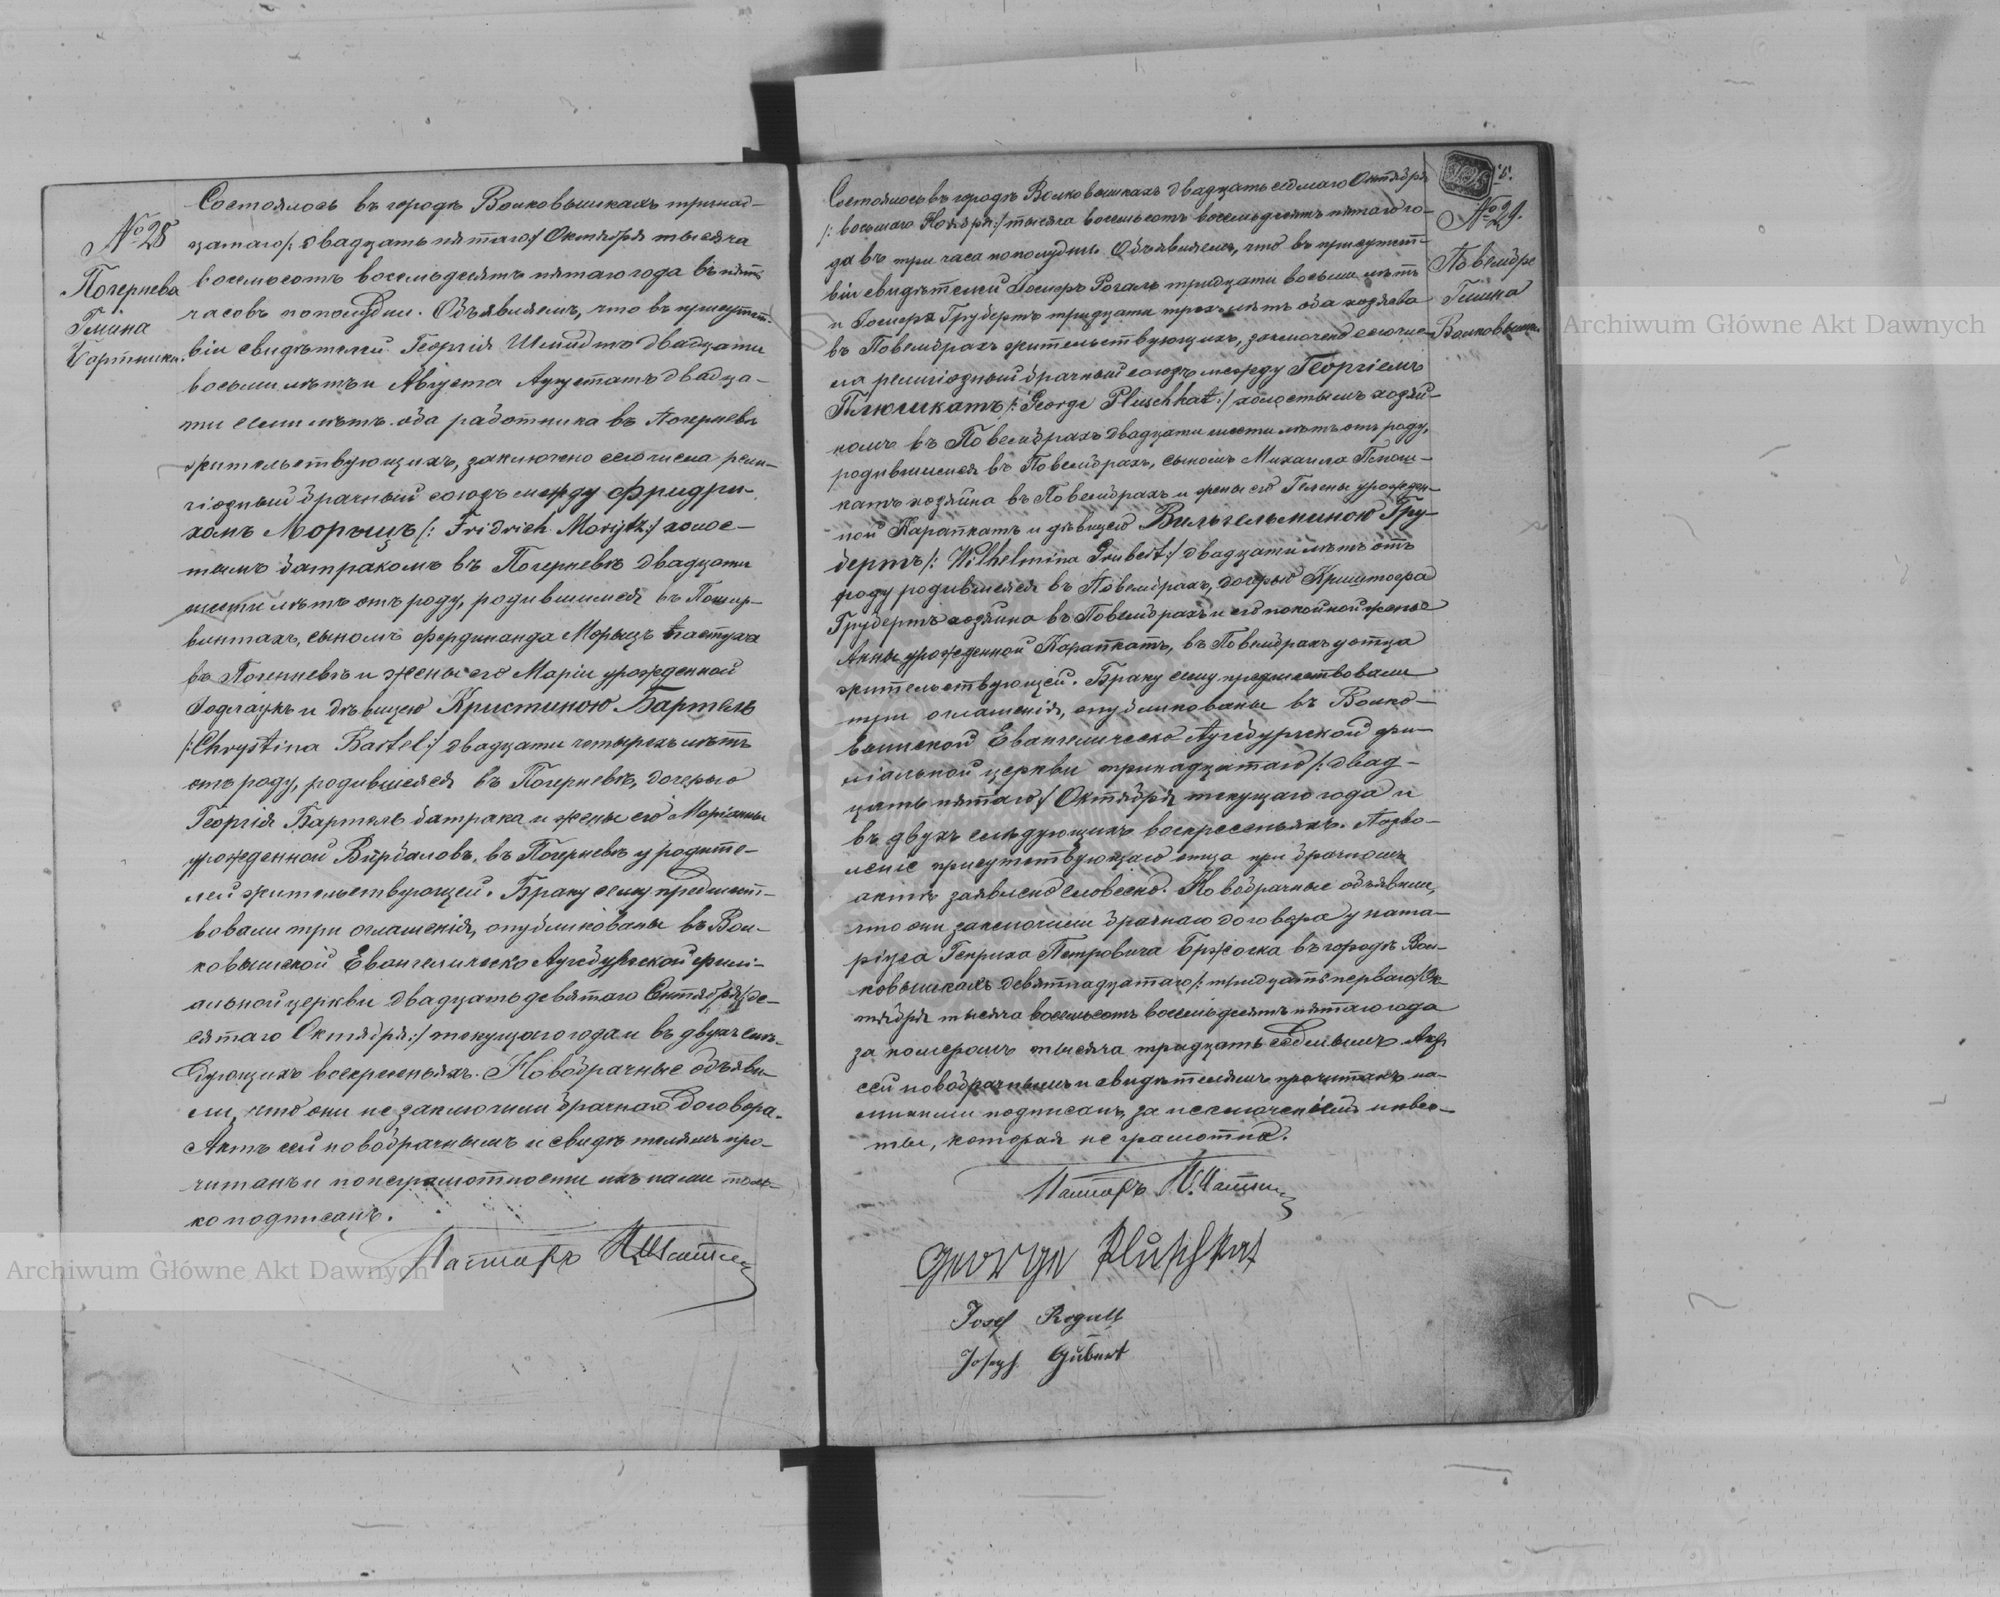 № 28
Погернева
Гмина
Бартники.
Состоялось въ городѣ Волковышкахъ тринад-
цатаго /: двадцать пятаго :/ Октября тысяча
восемьсотъ восемьдесятъ пятаго года въ пять
часовъ пополудни. Объявляемъ, что въ присутст-
віи свидѣтелей Георгія Шмидтъ двадцати
восьми лѣтъ и Августа Аугустатъ двадца-
ти семи лѣтъ оба работника въ Погерневѣ
жительствующихъ, заключено сего числа рели-
гіозный брачный союзъ между Фридри-
хомъ Морицъ /: Fridrich Moritz :/ холос-
тымъ батракомъ въ Погерневѣ двадцати
шести лѣтъ отъ роду, родившимся въ Пошир-
винтахъ, сыномъ Фердинанда Морицъ пастуха
въ Погерневѣ и жены его Маріи урожденной
Годлаукъ и дѣвицею Христиною Бартель
/: Chrystina Bartel :/ двадцати четырехъ лѣтъ
отъ роду, родившейся въ Погерневѣ, дочерью
Георгія Бартель батрака и жены его Маріанны
урожденной Вирбаловъ, въ Погерневѣ у родите-
лей жительствующей. Браку сему предшест-
вовали три оглашенія, опубликованы въ Вол-
ковышской Евангелическо Аугсбургской фили-
альной церкви двадцать девятаго Сентября /: де-
сятаго Октября :/ текущаго года и въ двухъ слѣ-
дующихъ воскресеньяхъ. Новобрачные объяви-
ли, что они не заключили брачнаго договора.
Актъ сей новобрачнымъ и свидѣтелямъ про-
читанъ и по неграмотности ихъ нами толь-
ко подписанъ.
Пасторъ
№ 29.
Повембре
Гмина
Волковышки
Состоялось въ городѣ Волковышкахъ двадцать седмаго Октября
/: восьмаго Ноября :/ тысяча восемьсотъ восемьдесятъ пятаго го-
да въ три часа пополудни. Объявляемъ, что въ присутст-
віи свидѣтелей Іосифъ Рогаль тридцати восьми лѣтъ
и Іосифа Грубертъ тридцати трехъ лѣтъ оба хозяева
въ Повембрахъ жительствующихъ, заключено сего чис-
ла религіозный брачный союзъ между Георгіемъ
Плюшкатъ /: George Pluschkat :/ холостымъ хозяи-
номъ въ Повембрахъ двадцати шести лѣтъ отъ роду,
родившимся въ Повембрахъ, сыномъ Михаила Плюш-
катъ хозяина въ Повембрахъ и жены его Гелены урожден-
ной Карапкатъ и дѣвицею Вильгельминою Гру-
бертъ /: Wilhelmina Grubert :/ двадцати лѣтъ отъ
роду родившейся въ Повембрахъ, дочерью Криштофа
Грубертъ хозяина въ Повембрахъ и его покойной жены
Анны урожденной Карапкатъ, въ Повембрахъ у отца
жительствующей. Браку сему предшествовали
три оглашенія, опубликованы въ Волко-
вышской Евангелическо Аугсбургской фи-
ліальной церкви тринадцатаго /: двад-
цать пятаго :/ Октября текущаго года и
въ двухъ слѣдующихъ воскресеньяхъ. Позво-
леніе присутствующаго отца при брачномъ
актѣ заявлено словесно. Новобрачные объявили,
что они заключили брачнаго договора у нота-
ріуса Генриха Петровича Бржоска въ городѣ Вол-
ковышкахъ девятнадцатаго /: тридцать перваго :/ Ок-
тября тысяча восемьсотъ восемьдесятъ пятаго года
за номеромъ тысяча тридцать седьмымъ. Актъ
сей новобрачнымъ и свидѣтелямъ прочитанъ на-
ми и ими подписанъ, за исключеніемъ невес-
ты, которая не грамотна.
Пасторъ
George Pluschkat
Josef Rogall
Joseph Gubert
Archiwum Główne Akt Dawnych
Archiwum Główne Akt Dawnych